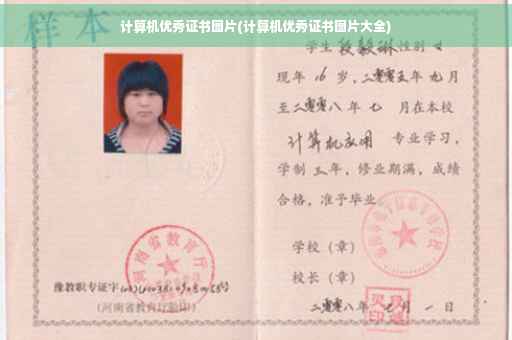 计算机优秀证书图片(计算机优秀证书图片大全)
样本
学生 段毅琳 性别 女
现年 16 岁,二零零五年 九 月
至二零零八年 七 月在本校
计算机应用 专业学习,
学制 三 年,修业期满,成绩
合格,准予毕业
学校(章)
校长(章)
二零零八年 七 月 一 日
河南省教育厅
豫教职专证字
(河南省教育厅验印)